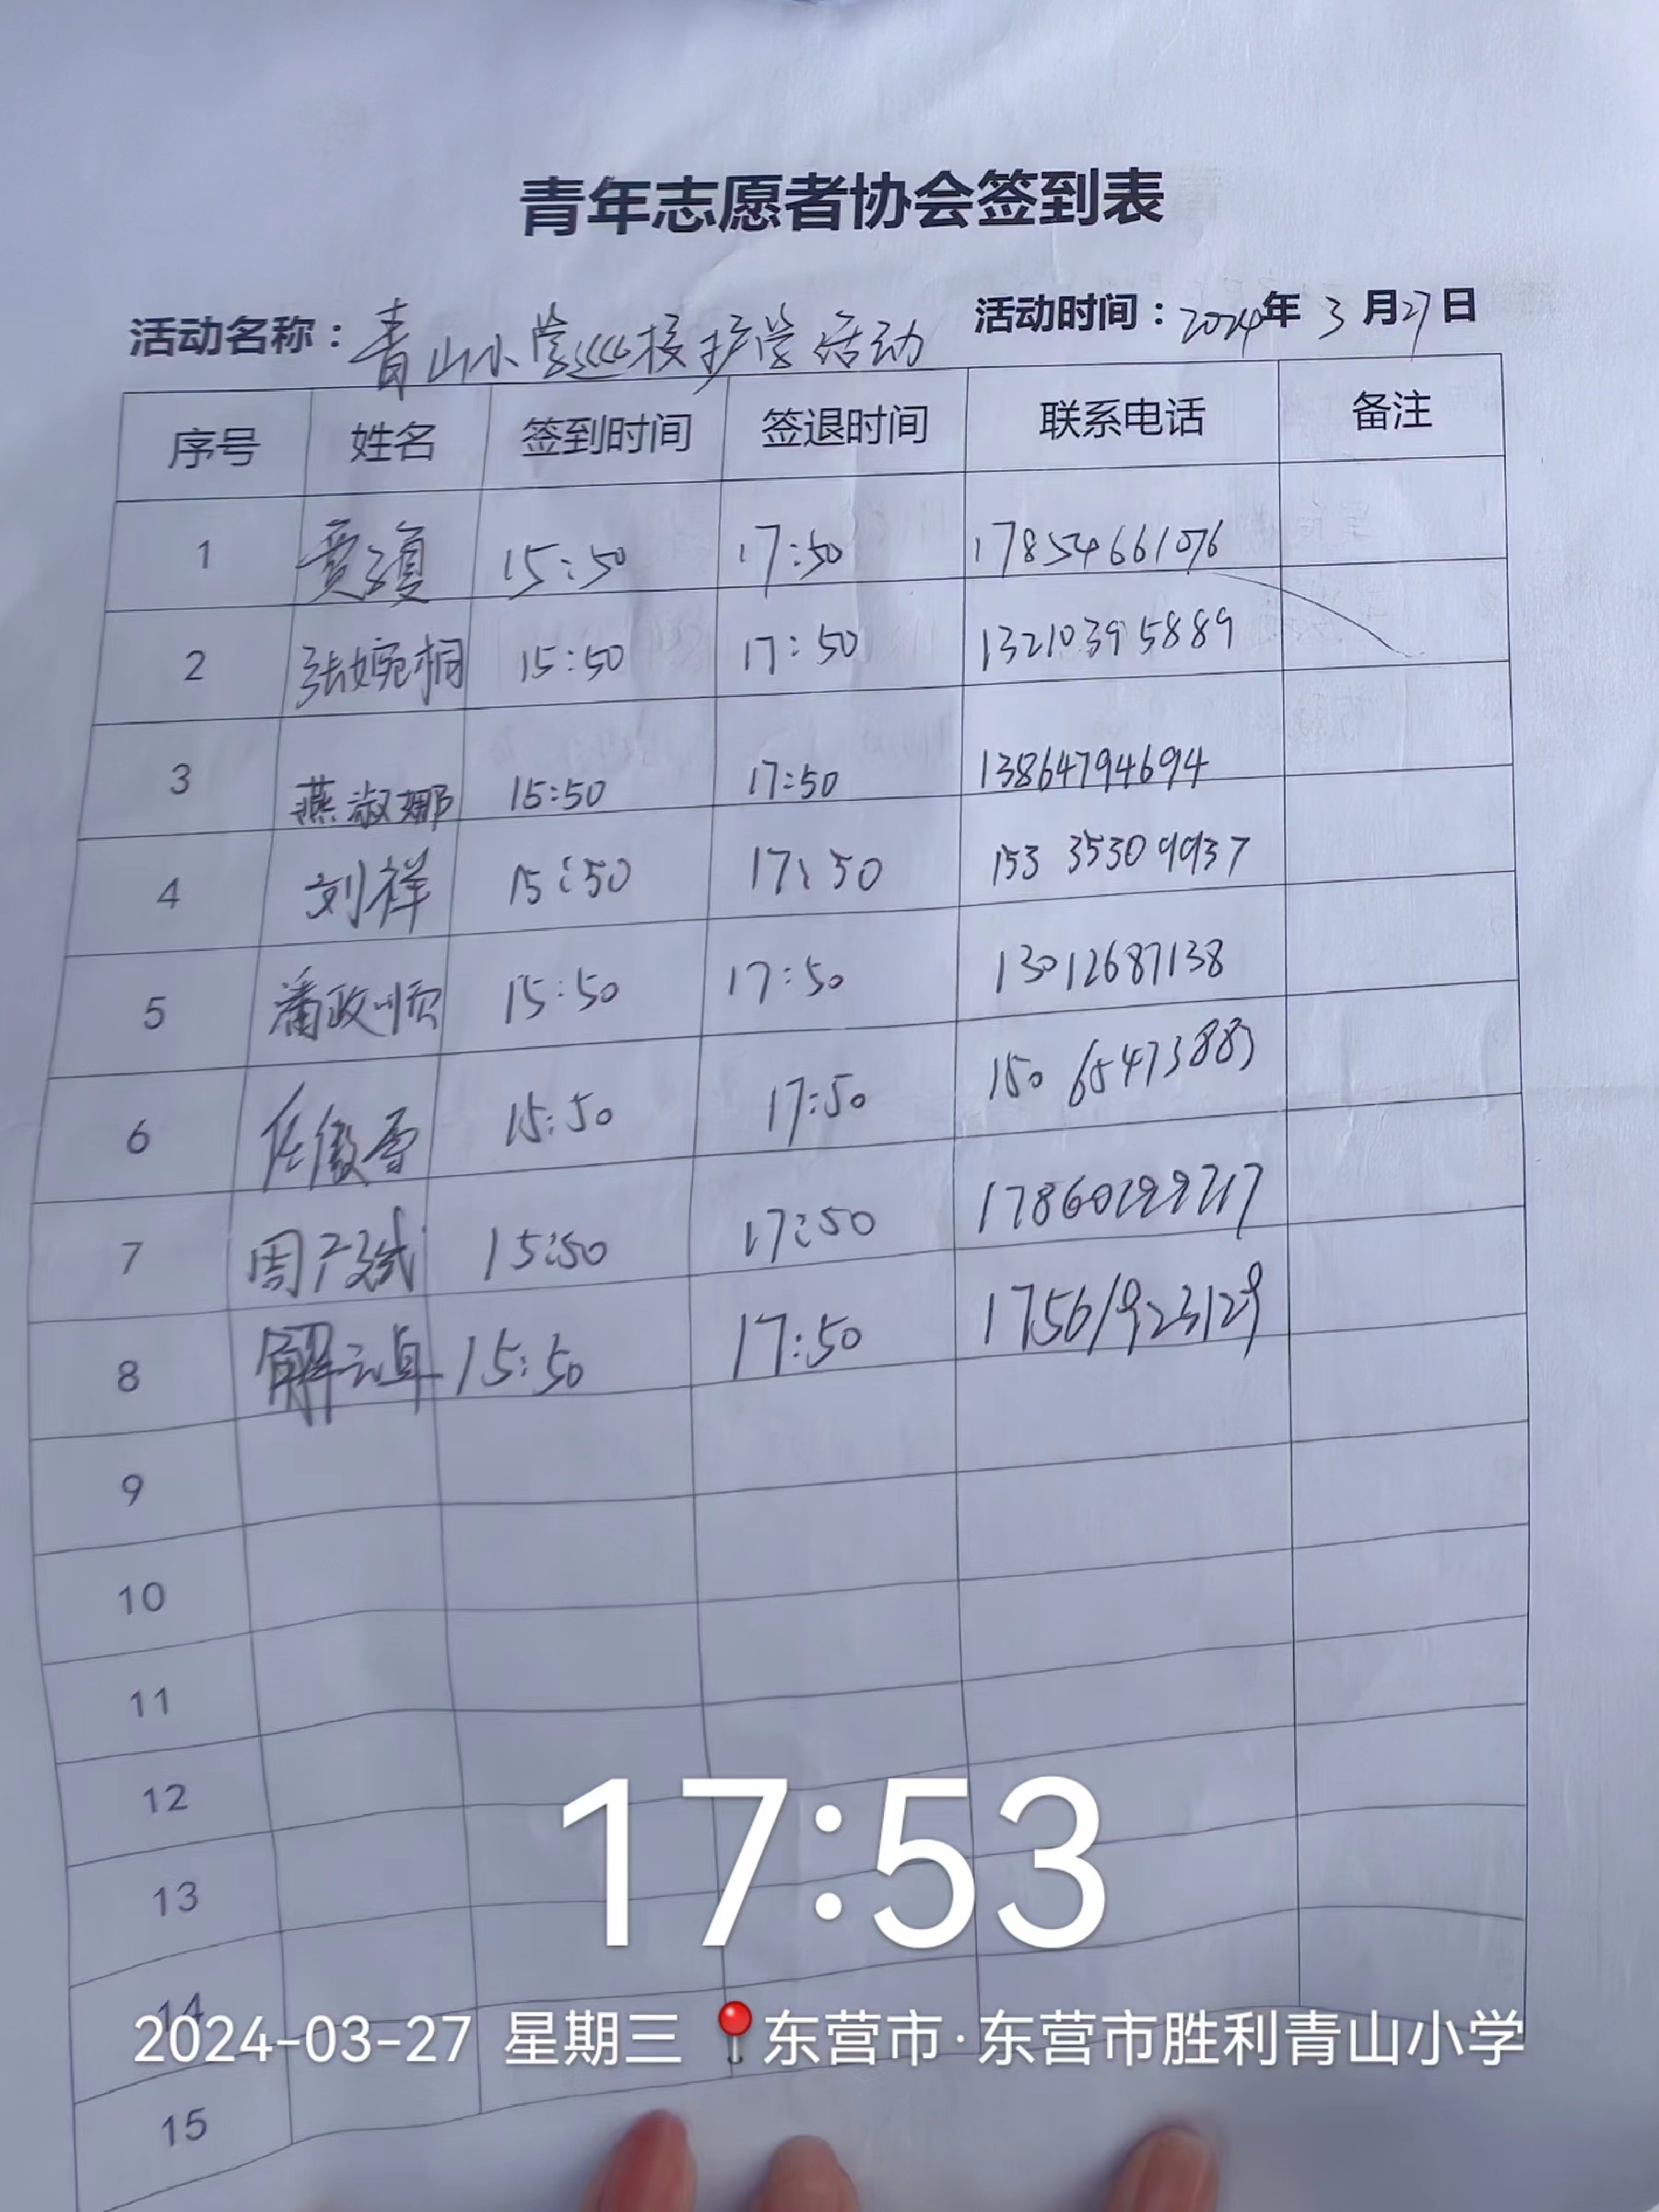 青年志愿者协会签到表
活动名称：青山小学巡校护学活动 活动时间：2024年3月27日
序号 姓名 签到时间 签退时间 联系电话 备注
1 15:50 17:50 17854661076
2 张婉桐 15:50 17:50 13210395889
3 燕淑娜 15:50 17:50 13864794694
4 刘祥 15:50 17:50 153 35309937
5 潘政顺 15:50 17:50 13012687138
6 任傲雪 15:50 17:50 150 65473883
7 15:50 17:50
8 解云卓 15:50 17:50 17561923129
9
10
11
12
13
14
15
17:53
2024-03-27 星期三 东营市·东营市胜利青山小学